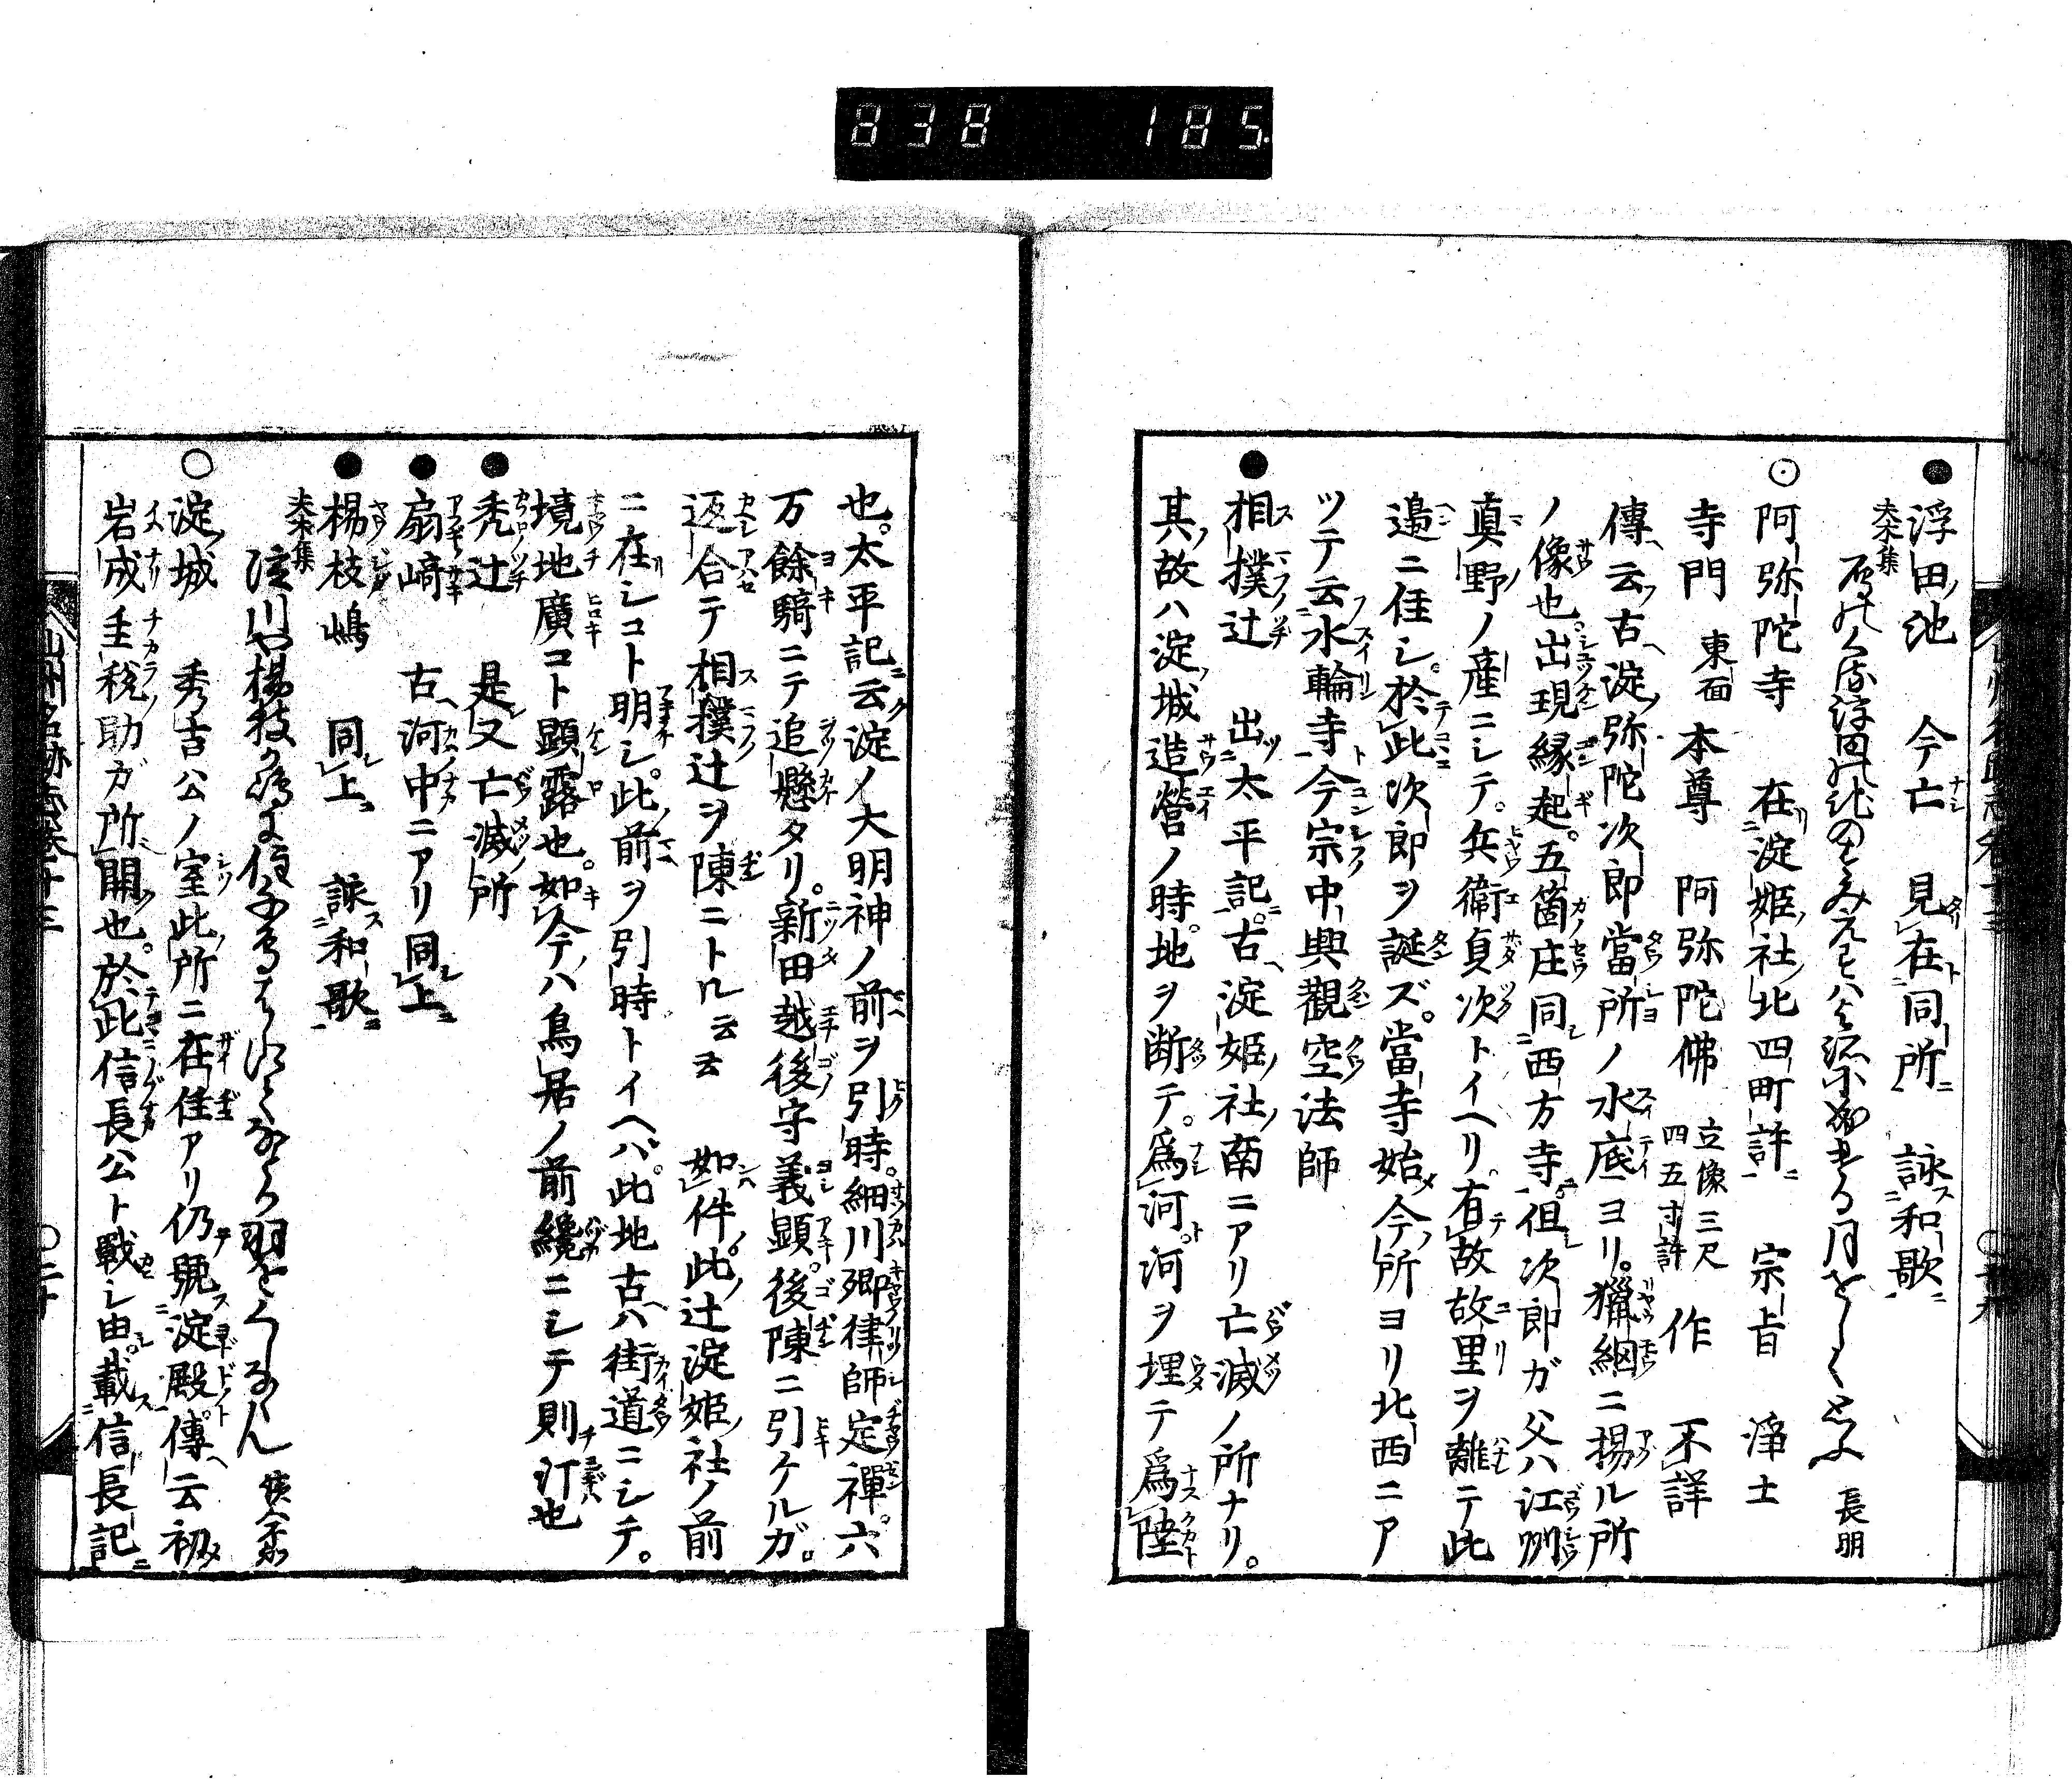 838 185
●浮田池 今亡 見在同所 詠和歌
夫木集 長明
阿弥陀寺 在淀姫社北四町許 宗旨 浄土
寺門 東面 本尊 阿弥陀佛 立像三尺四五寸許 作 不詳
傳云古淀弥陀次郎當所ノ水底ヨリ。獵網ニ揚ル所
ノ像也。出現縁起。五箇庄同西方寺。但次郎ガ父ハ江刕
真野ノ産ニシテ。兵衞貞次トイヘリ。有故故里ヲ離テ此
邉ニ住シ。於此次郎ヲ誕ズ。當寺始今所ヨリ北西ニア
ツテ云水輪寺今宗中興觀空法師
●相撲辻 出太平記。古淀姫社南ニアリ亡滅ノ所ナリ。
其故ハ淀城造營ノ時。地ヲ断テ。爲河。河ヲ埋テ爲陸
也。太平記云淀ノ大明神ノ前ヲ引時。細川卿律師定禪。六
万餘騎ニテ追懸タリ。新田越後守義顕。後陳ニ引ケルガ。
返合テ相撲辻ヲ陳ニトル云云 如件。此辻淀姫社ノ前
ニ在シコト明シ。此前ヲ引時トイヘバ。此地古ハ街道ニシテ。
境地廣コト顕露也。如今ハ鳥居ノ前纔ニシテ則汀也
●禿辻 是又亡滅所
●扇﨑 古河中ニアリ同上
●楊枝嶋 同上 詠和歌
夫木集
○淀城 秀吉公ノ室此所ニ在住アリ仍號淀殿。傳云初
岩成主税助ガ所開也。於此信長公ト戰シ由。載信長記
山州名跡志巻十三